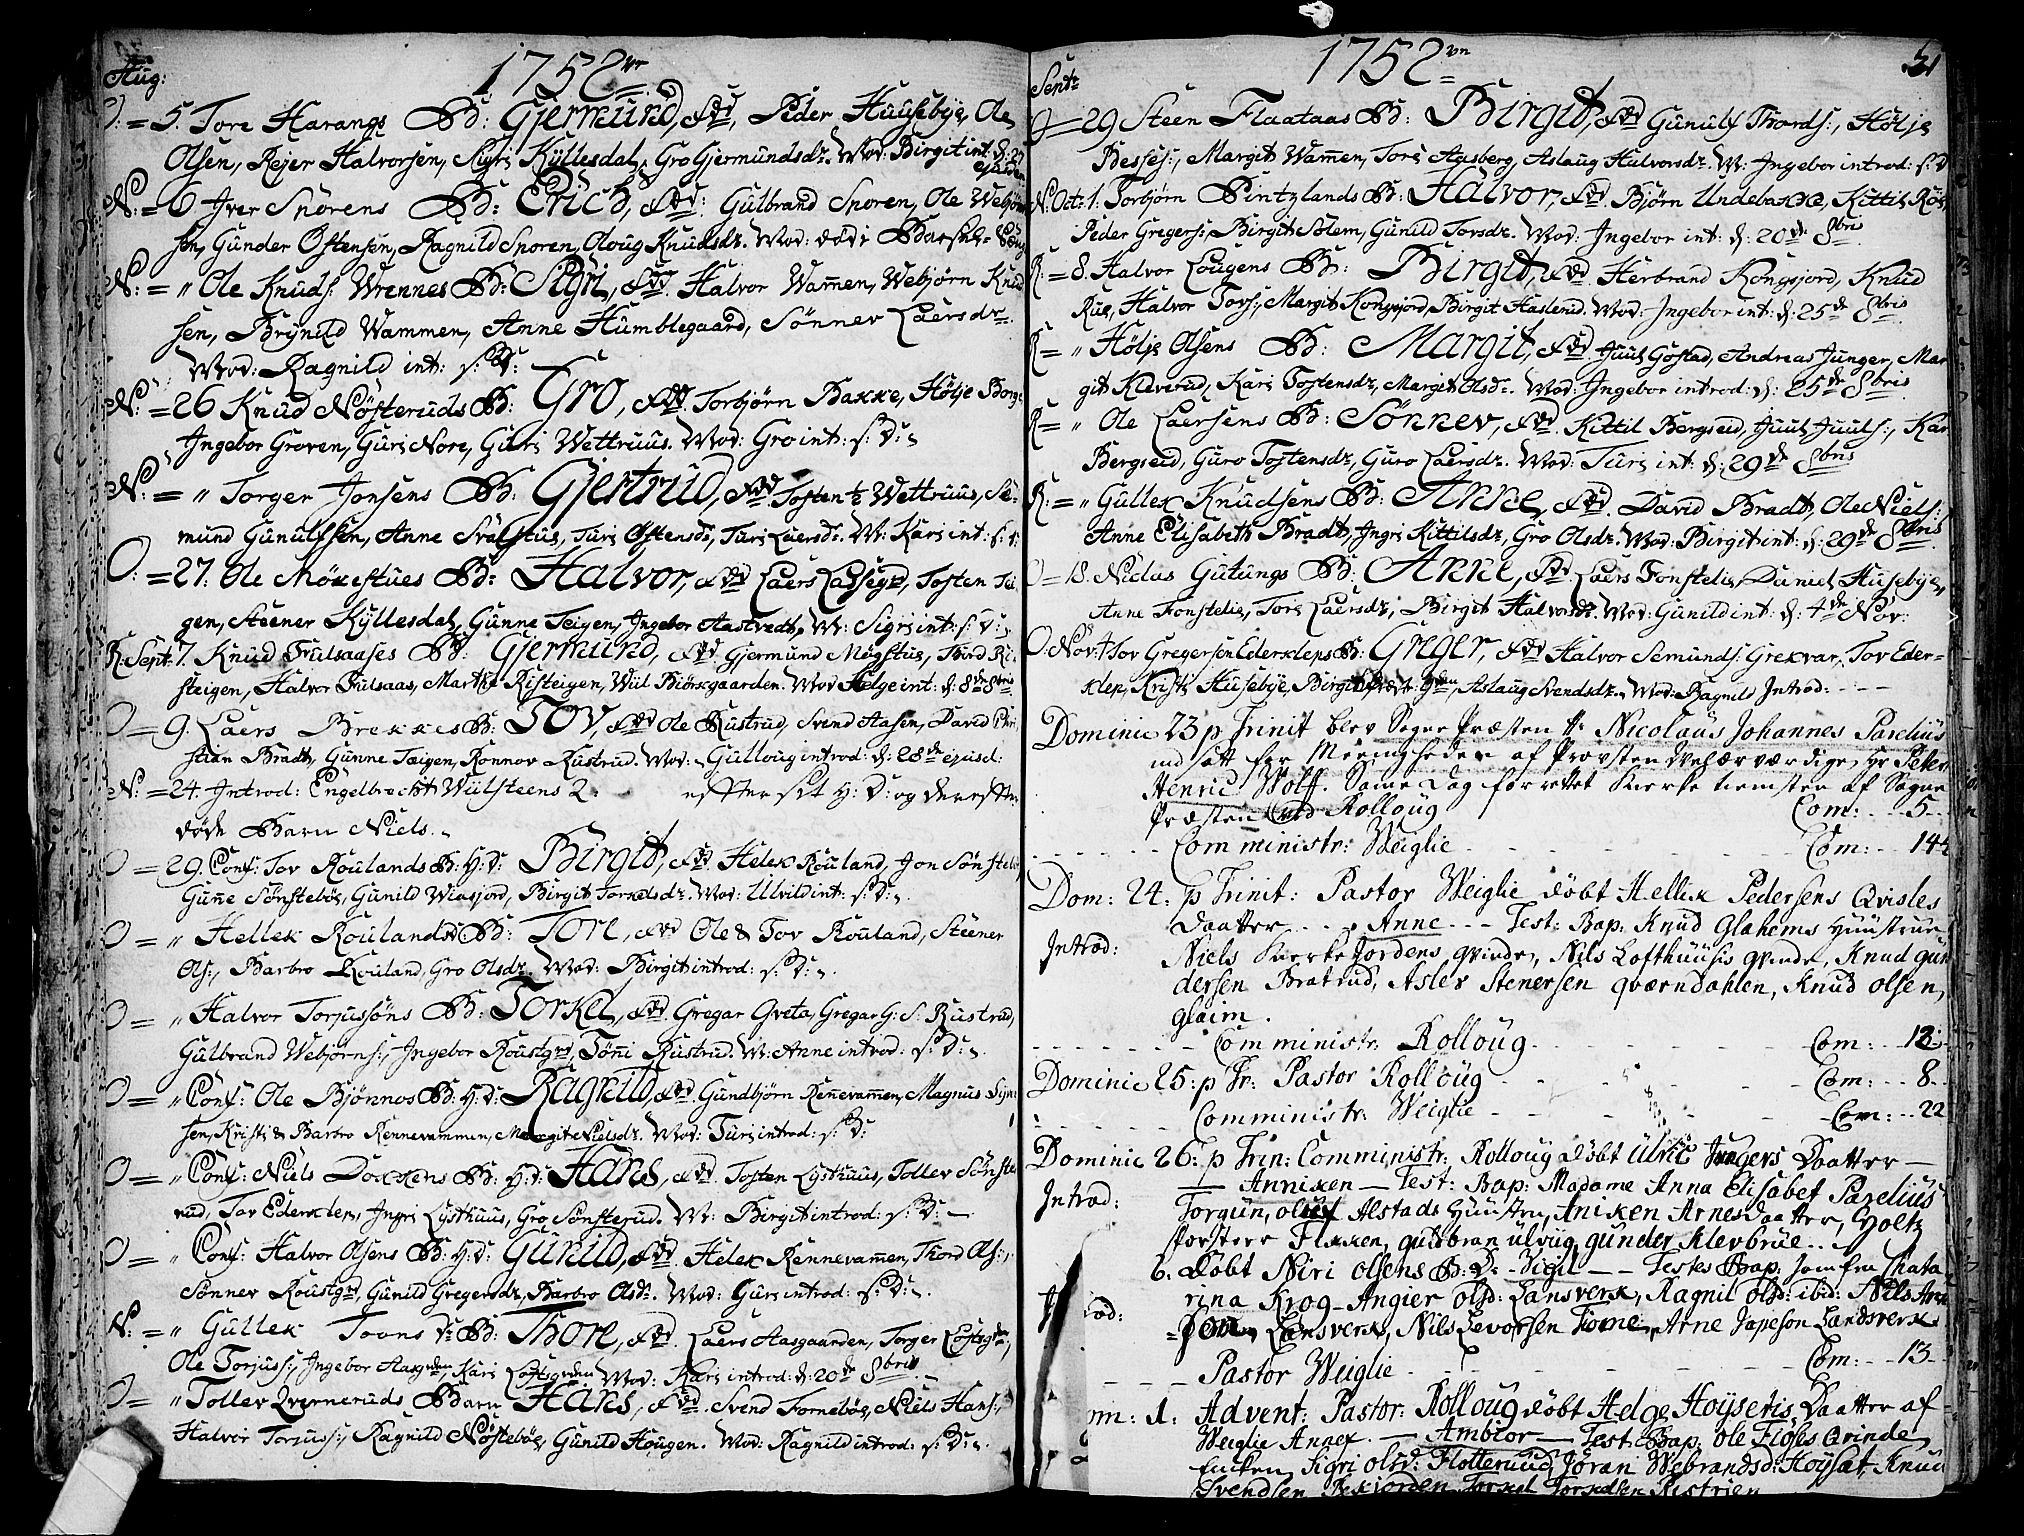 1752
Aug:
O: = 5. Tore Harangs Bd: Gjermund, Fdd, Peder Huusebye, Ole
Olsen, Rejer Halvorsen, Sigri Kyllesdal, Gro Gjermundsdr. Mod: Birgit int: d: 27
ejusdem
N: = 6 Jver Snorens Bd: Erich, Fdd: Gulbrand Snoren, Ole Webjörn
sen, Gunder Östensen, Ragnild Snoren, Oloug Knudsdr. Mod: döde Barsel-Seng
N: = " Ole Knuds: Wrennes Bd: Sigri, Fdd. Halvor Wamen, Webjörn Knud
sen, Brynild Wammen, Anne Humblegaard, Sönnev Laersdr.
Mod: Ragnild int: s: D:
N: = 26 Knud Nösteruds Bd: Gro, Fdd. Torbjörn Bakke, Hölje Borge
Jngebor Groven, Guri Nore, Guri Wettruus. Mod: Gro int: s: D:
N: = " Torger Jonsens Bd: Gjertrud, Fdd. Tosten Wettruus, Se-
mund Gunulfsen, Anne Svalstus, Turi Östensdr, Turi Laersdr. M: Kari int: s: D:
O: = 27. Ole Mökestues Bd: Halvor, Fdd Laers Lassegrd, Tosten Tei
gen, Steener Kyllesdal, Gunne Teigen, Jngebor Aastvedt, M: Sigri int: s: D:
R: Sept: 7. Knud Fulsaases Bd: Gjermund, Fdd Gjermund Mögstus, Thord Ri
steigen, Halvor Fulsaas, Marthe Risteigen, Wiil Biörkgaarden. Mod Helge int: d: 8de 8bris
O = 9. Laers Brekkes Bd: Tov, Fdd Ole Rustrud, Svend Aasen, David Chri
stian Bradt, Gunne Teigen, Ronnov Rustrud. Mod: Gulloug introd: d: 28de ejusd:
N: = 24. Introd: Engelbrecht Wulsteens 2. efter sit H: D: og derefter
döde Barn Niels.
O = 29. Conf: Tov Roulands Bd: H: D: Birgit, Fdd. Helek Rouland, Jon Sönstebö
Gune Sönstebös, Gunild Wiasjord, Birgit Torkelsdr. Mod: Ulvild int: s: D:
O = " Hellek Roulands Bd: Tore, Fdd Ole & Tov Rouland, Steener
Ols:, Barbro Rouland, Gro Olsdr. Mod: Birgit introd: s: D:
O = " Halvor Torjussöns Bd: Torkel, Fdd. Gregar Qveta, Gregar G: S: Rustrud,
Gulbrand Webjörns:, Jngebor Roustgrd, Tönni Rustrud. M: Anne introd: s: D:
O = " Conf: Ole Bjönnos Bd: H: D: Ragnild, Fdd. Gundbjörn Rennevamen, Magnus Siver
sen, Kristi & Barbro Rennevammen, Margit Nielsdr. Mod: Turi introd: s: D:
O = " Conf: Niels Dokkens Bd: H: D: Hans, Fdd. Tosten Lysthuus, Tollev Sönste
rud, Tov Ederklep, Jngri Lysthuus, Gro Sönsterud. M: Birgit introd: s: D:
O = " Conf: Halvor Olsens Bd: H: D: Gunild, Fdd. Helek Rennevamen, Thord Ols:,
Sönnev Roustgrd, Gunild Gregersdr, Barbro Olsdr. Mod: Guri introd: s: D:
N: = " Gullek Tovens Bd: Thore, Fdd. Laers Aasgaarden, Torger Loftsgrden,
Ole Torjuss:, Jngebor Aasgrden, Kari Loftsgrden Mod: Kari introd: d: 20de 8bris
O = " Tollev Qvernneruds Barn Hans, Fdd. Svend Fornebös, Niels Hans:,
Halvor Torjuss:, Ragnild Nöstebös, Gunild Hougen. Mod: Ragnild introd: s: D:
1752
Septr
O = 29 Steen Flaataas Bd: Birgit, Fdd Gunulf Thords:, Hölje
Besses:, Margit Wamen, Tore Aasberg, Aslaug Halvorsdr. M: Jngebor introd: s: D
N: Oct: 1. Torbjörn Pintzlands Bd: Halvor, Fdd Björn Undebakke, Kittil Röe,
Peder Gregers:, Birgit Solem, Gunild Torsdr. Mod: Jngebor int: d: 20de 8bris
R: = 8. Halvor Lougens Bd: Birgit, Fdd Herbrand Kongsjord, Knud
Rue, Halvor Tors:, Margit Kongsjord, Birgit Haslerud. Mod: Jngebor int: d: 25de 8bris
R = " Hölje Olsens Bd: Margit, Fdd Juul Gostad, Andreas Junger, Mar
git Kleverud, Kari Tostensdr, Margit Olsdr. Mod: Jngebor introd: d: 25de 8bris
R = " Ole Laersens Bd: Sönnev, Fdd. Kittil Bergseid, Juul Juuls:, Kari
Bergseid, Guro Tostensdr, Guro Laersdr. Mod: Turi int: d: 29de 8bris
R: = " Gullek Knudsens Bd: Anne, Fdd. David Bradt, Ole Niels:
Anne Elisabeth Bradt, Jngri Kittilsdr, Gro Olsdr. Mod: Birgit int: d: 29de 8bris
O = 18. Niclas Gutungs Bd: Anne, Fdd. Laers Fonstelie, Daniel Husebye,
Anne Fonstelie, Tore Laersdr, Birgit Halvorsdr. Mod: Gunild int: d: 4de Nov:
O: Nov: 4 Tov Gregersen Ederkleps Bd: Greger, Fdd Halvor Semunds: Grekvar, Tov Eder-
klep, Kristi Husebye, Birgit, Aslaug Svendsdr. Mod: Ragnild Introd:
Dominic 23 p Trinit blev Sogne Præsten Hr Nicolaus Johannes Parelius
indsatt for Meenigheden af Provsten Welærværdige Hr Peter
Henric Wolff. Same Dag forrettet Kierke tienesten af Sogne
Præsten Rolloug Com: 5
Comministr: Weiglie Com: 144
Dom: 24. p Trinit: Pastor Weiglie döbt Hellek Pedersens Qvisles
Daatter Anne Test: Bap: Knud Glahems Huustrue
Introd: Niels Kierke Jordens qvinde, Nils Lofthuusis qvinde, Knud gun
dersen Bratrud, Aslev Stenersen qværndahlen, Knud olsen,
Glaim.
Comministr: Rolloug Com: 12
Dominic 25: p Tr: Pastor Rolloug Com: 8
Comministr: Weiglie Com: 22
Dominic 26: p Trin: Comministr: Rolloug döbt Ulric Jngers Daatter
Anniken Test: Bap: Madame Anna Elisabet Parelius
Introd: Torgun, oluf Alstads Huustru, Aniken Arnes daatter, Holtz
Flaken, gulbran ulvug, gunder Klevbrue.
6. döbt Niri Olsens B: D: Sigil Testes Bap: Jomfru Chata
rina Krog Angier olsd: Lansverk, Ragnil olsd: ibid: Nils Arne
Lansverk, Nils Levorsen Tome, Arne Japeson Landsverk
Pastor Weiglie Com: 13
Dom: 1: Advent: Pastor: Rolloug döbt Helge Höyseris Daatter af
Weiglie Annex. Ambior Test: Bap: Ole Flöes Qvinde
Enken, Sigri Olsd: Flotterud, Jöran Webrandsd: Höysæt, Knud
Svendsen